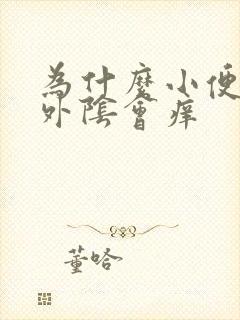 為什麼小便
外陰會痒
董哈